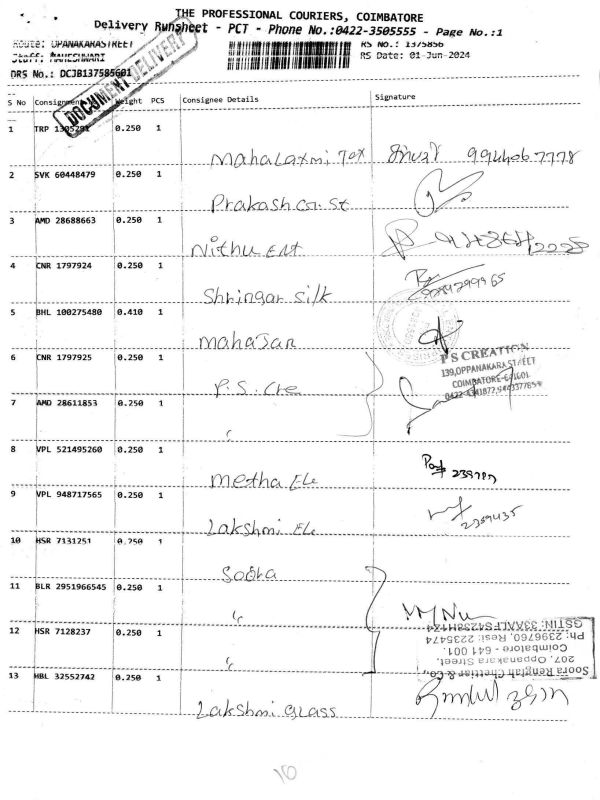 THE PROFESSIONAL COURIERS, COIMBATORE
Delivery Runsheet - PCT - Phone No.:0422-3505555 - Page No.:1
Route: OPANAKARASTREET
RS No.: 1375856
Staff: MAHESHWARI
RS Date: 01-Jun-2024
DRS No.: DCJB137585601
DOCUMENT DELIVERY
S No Consignment Weight PCS Consignee Details Signature
1 TRP 0.250 1 Mahalaxmi Tex
2 SVK 60448479 0.250 1 Prakash
3 AMD 28688663 0.250 1 Nithu Ent
4 CNR 1797924 0.250 1 Shringar Silk
5 BHL 100275480 0.410 1 Mahajan
6 CNR 1797925 0.250 1 P.S. Cre
P S CREATION
139,OPPANAKARA STREET
COIMBATORE-641001.
7 AMD 28611853 0.250 1 "
8 VPL 521495260 0.250 1 Metha Ele
9 VPL 948717565 0.250 1 Lakshmi Ele
2359435
10 HSR 7131251 0.250 1 Soora
11 BLR 2951966545 0.250 1 "
12 HSR 7128237 0.250 1 "
Soora Rengiah Chettiar & Co.,
207, Oppanakara Street,
Coimbatore - 641 001.
Ph: 2396760, Resi: 2235474
13 HBL 32552742 0.250 1 Lakshmi Glass
10